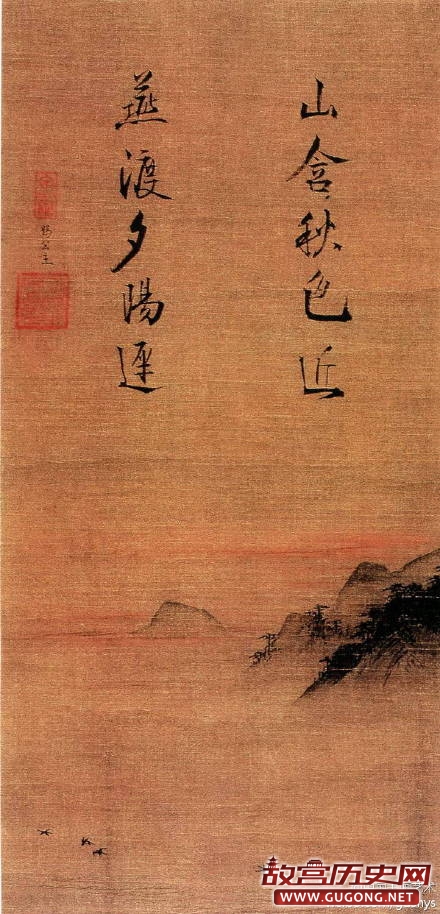 山含秋色近
燕渡夕陽遲
賜公主
故宫历史网
WWW.GUGONG.NET